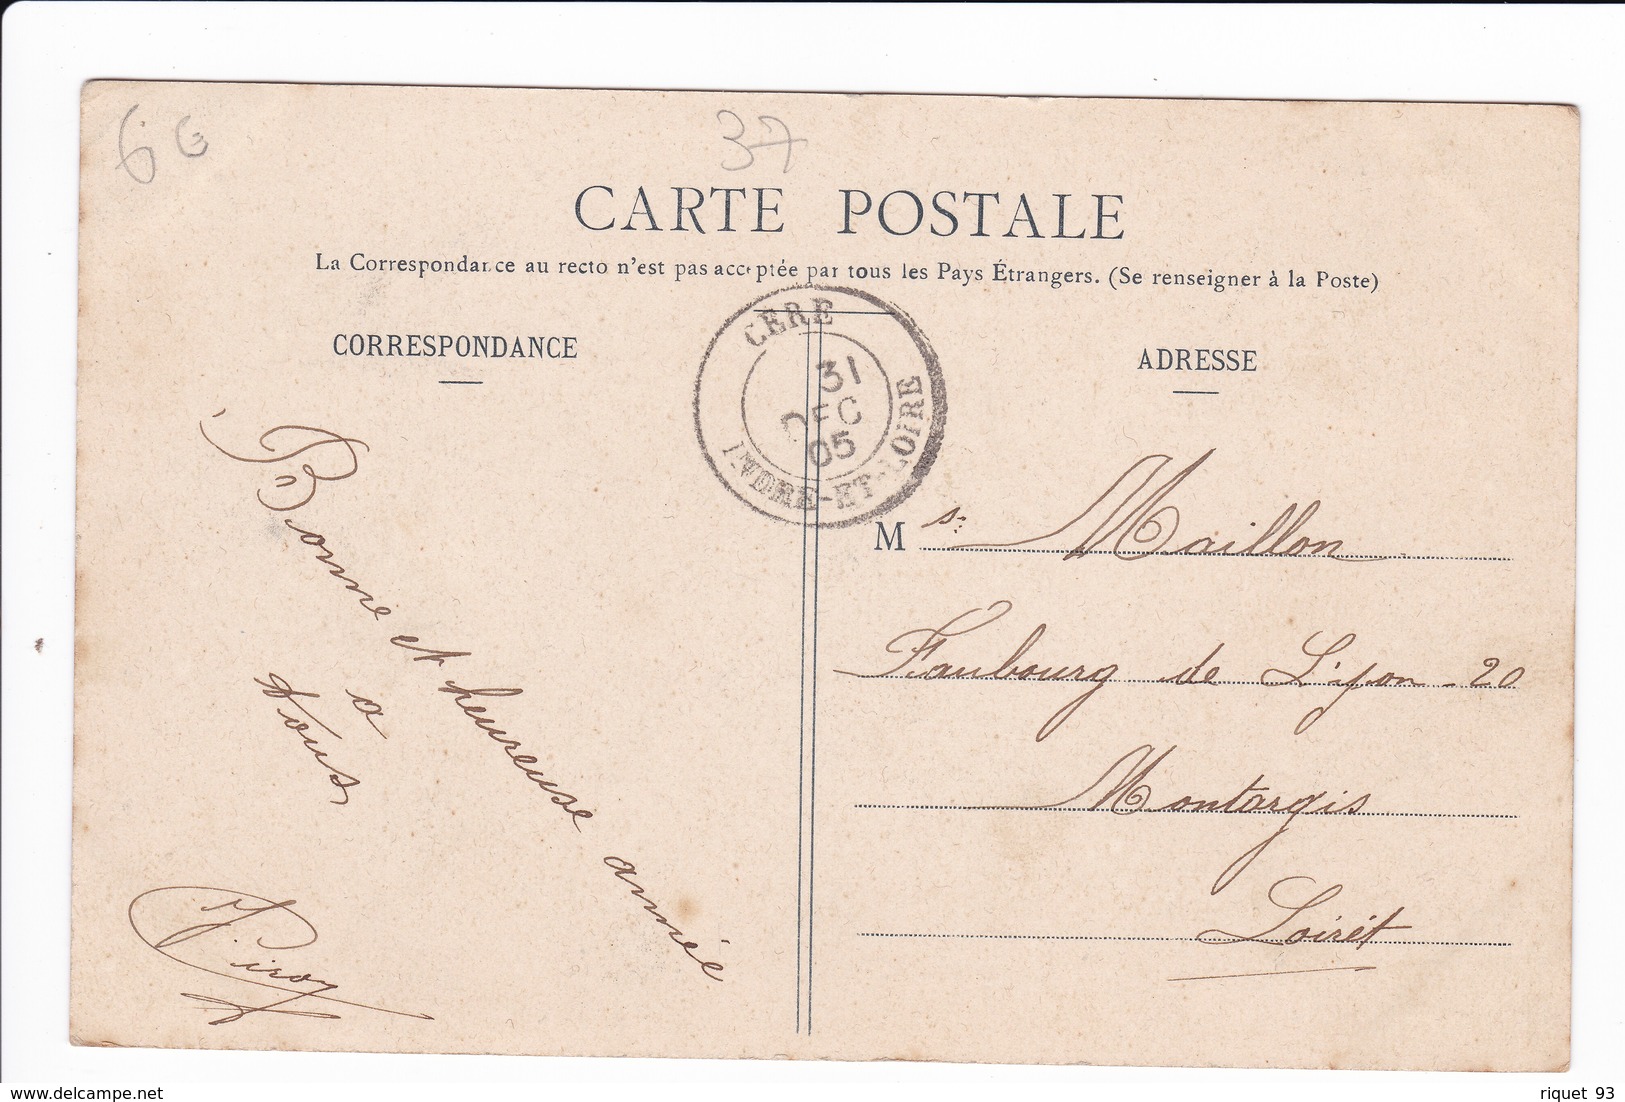 6€
37
CARTE POSTALE
La Correspondance au recto n'est pas acceptée par tous les Pays Étrangers. (Se renseigner à la Poste)
CORRESPONDANCE
CÉRÉ
31
DEC
05
INDRE-ET-LOIRE
ADRESSE
Bonne et heureuse année
à
tous
Mr Maillon
Faubourg de Lyon - 20
Montargis
Loiret
delcampe.net
riquet 93